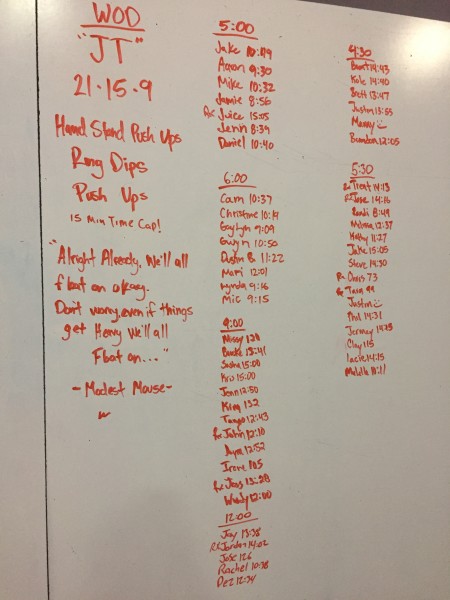 WOD
"JT"
21·15·9
Hand Stand Push Ups
Ring Dips
Push Ups
15 Min Time Cap!
"Alright Already, We'll all
float on okay.
Don't worry, even if things
get Heavy We'll all
Float on..."
-Modest Mouse-
5:00
Jake 10:49
Aaron 9:30
Mike 10:32
Jamie 8:56
Rx Juice 15:05
Jenn 8:39
Daniel 10:40
6:00
Cam 10:37
Christine 10:19
Gaylyn 9:09
Gwyn 10:50
Dustin B 11:22
Mari 12:01
Lynda 9:16
Mic 9:15
9:00
Missy 120
13:41
Sasha 15:00
Kris 15:00
Jenn 12:50
King 132
Tango 12:43
Rx 12:10
12:52
Irene 105
Rx 13:28
Woody 12:00
12:00
Jay 13:38
Rx Jordan 14:02
Jose 126
Rachel 10:38
Dez 12:34
4:30
14:43
Kole 14:40
Brett 13:47
Justin 13:55
Manny
Brandon 12:05
5:30
Rx Trent 14:13
Rx Jose 14:16
8:49
Melissa 12:37
Kathy 11:27
Jake 15:05
Steve 14:30
Rx Chris 73
Rx Tara 99
Justin
Phil 14:31
Jeremy 14:23
Clay 115
14:15
11:11